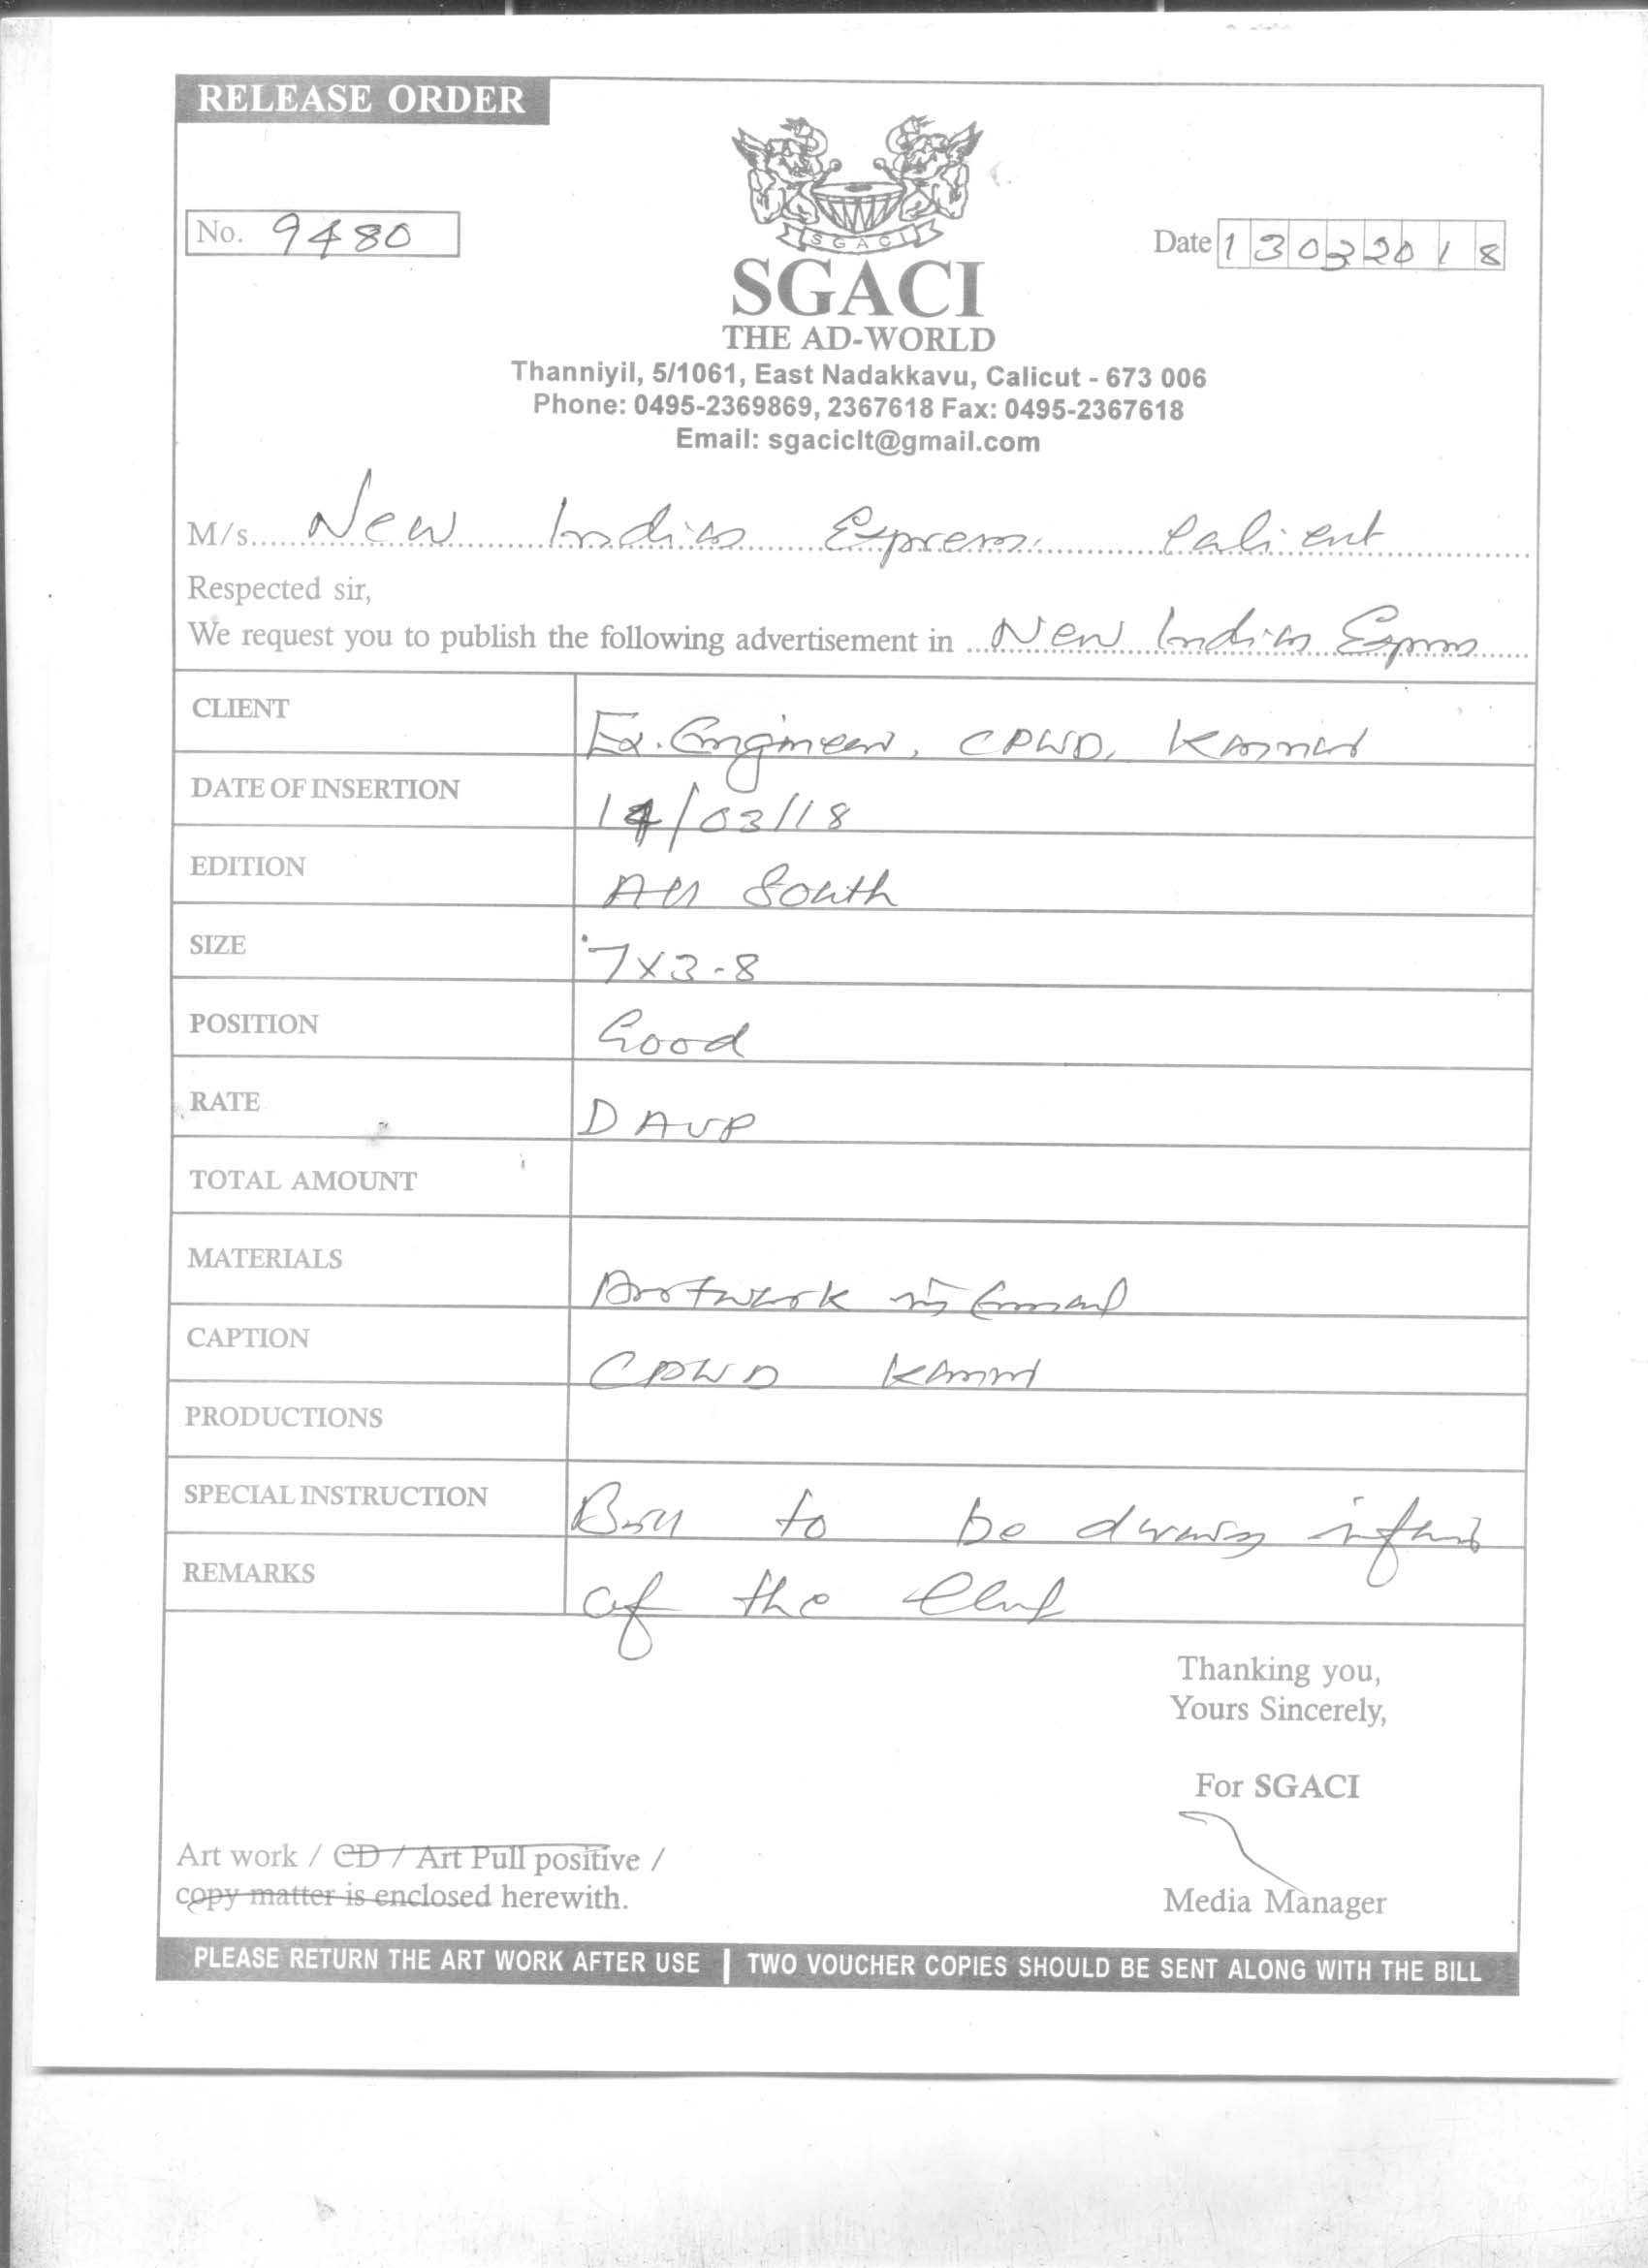 RELEASE ORDER
No. 9480
Date 13032018
SGACI
SGACI
THE AD-WORLD
Thanniyil, 5/1061, East Nadakkavu, Calicut - 673 006
Phone: 0495-2369869, 2367618 Fax: 0495-2367618
Email: sgaciclt@gmail.com
M/s. New Indian Express, Calicut
Respected sir,
We request you to publish the following advertisement in New Indian Express
CLIENT Ex. Engineer, CPWD, Kannur
DATE OF INSERTION 14/03/18
EDITION All South
SIZE 7x3-8
POSITION Good
RATE DAVP
TOTAL AMOUNT
MATERIALS Artwork in Email
CAPTION CPWD Kannur
PRODUCTIONS
SPECIAL INSTRUCTION Bill to be
REMARKS of the
Thanking you,
Yours Sincerely,
For SGACI
Art work / CD / Art Pull positive /
copy matter is enclosed herewith.
Media Manager
PLEASE RETURN THE ART WORK AFTER USE | TWO VOUCHER COPIES SHOULD BE SENT ALONG WITH THE BILL